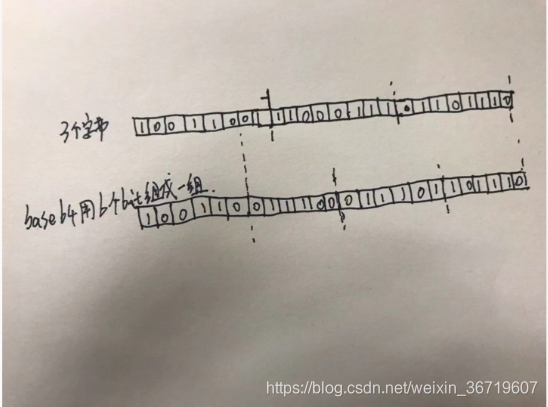 3个字节 1 0 0 1 1 0 0 1 1 1 0 0 0 1 1 1 0 1 1 0 1 1 1 0
base64用6个bit组成一组. 1 0 0 1 1 0 0 1 1 1 0 0 0 1 1 1 0 1 1 0 1 1 1 0
https://blog.csdn.net/weixin_36719607